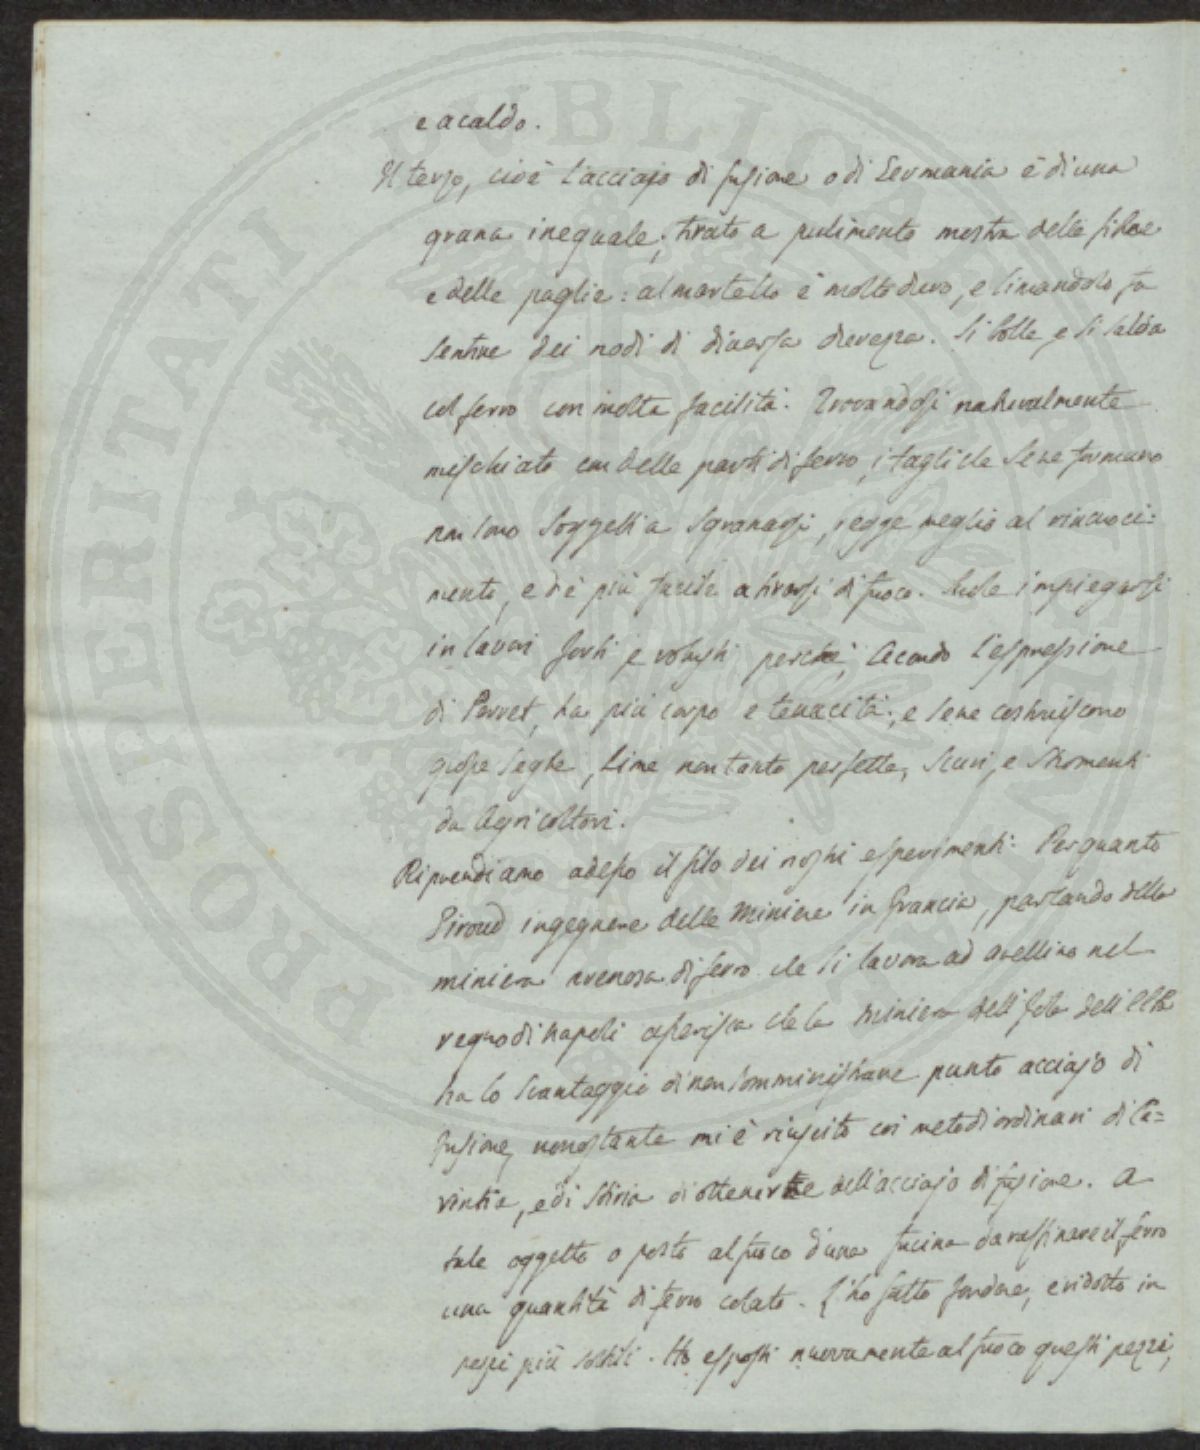 e a caldo.
Il terzo, cioè l'acciajo di fusione o di Germania è di una
grana ineguale; tirato a pulimento mostra delle fibre
e delle paglie: al martello è molto duro, e limandolo fa
sentire dei nodi di diversa durezza. Si bolle e si salda
col ferro con molta facilità. Trovandosi naturalmente
mischiato con delle parti di ferro, i tagli che se ne formano
non sono soggetti a sgranarsi, regge meglio al rincuoci=
mento, ed è più facile a tirarsi di fuoco. Suole impiegarsi
in lavori forti e robusti perchè, secondo l'espressione
di Perret, ha più corpo e tenacità; e se ne costruiscono
grosse seghe, lime non tanto perfette, scuri, e stromenti
da Agricoltori.
Riprendiamo adesso il filo dei nostri esperimenti: Per quanto
Giroud ingegnere delle Miniere in francia, parlando della
miniera arenosa di ferro che si lavora ad Avellino nel
regno di Napoli asserisca che la Miniera dell'Isola dell'Elba
ha lo svantaggio di non somministrare punto acciajo di
fusione, nonostante mi è riuscito coi metodi ordinari di Ca=
rintia, e di Stiria di ottenerne dell'acciajo di fusione. A
tale oggetto o posto al fuoco d'una fucina da raffinare il ferro
una quantità di ferro colato. L'ho fatto fondere, e ridotto in
pezzi più sottili. Ho esposti nuovamente al fuoco questi pezzi,
PROSPERITATI PUBLICAE AUGENDAE